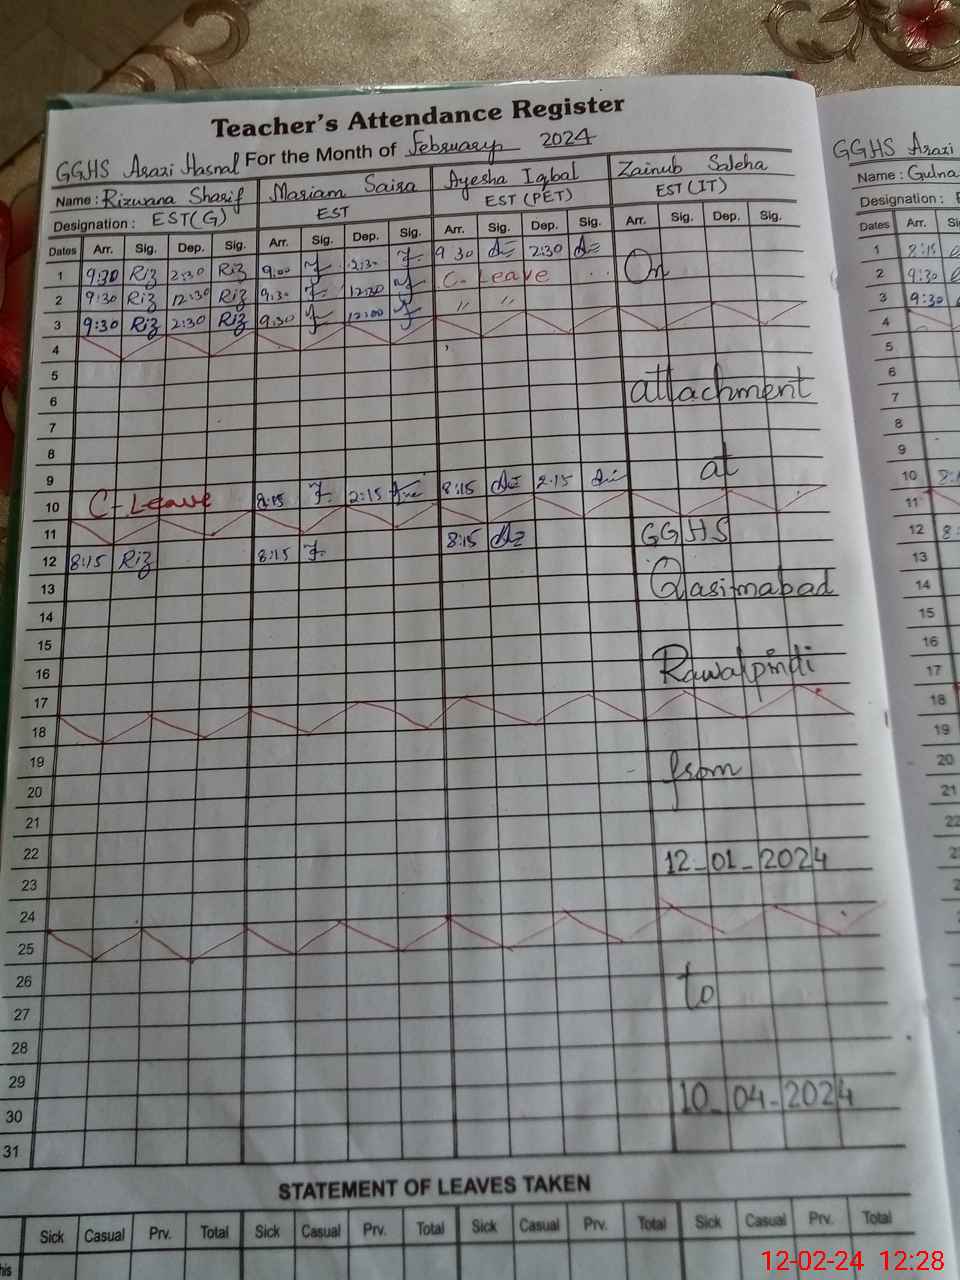 Teacher's Attendance Register
GGHS Arazi Hasnal For the Month of February 2024
Name: Rizwana Sharif Mariam Saira Ayesha Iqbal Zainub Saleha
Designation: EST(G) EST EST (PET) EST (IT)
Dates Arr. Sig. Dep. Sig. Arr. Sig. Dep. Sig. Arr. Sig. Dep. Sig. Arr. Sig. Dep. Sig.
1 9:30 Riz 2:30 Riz 9:00 12:30 9 30 2:30
2 9:30 Riz 12:30 Riz 9:30 12:30 C-Leave On
3 9:30 Riz 2:30 Riz 9:30 12:00 " "
4
5
6 attachment
7
8
9 at
10 C-Leave 8:15 2:15 8:15 2:15
11
12 8:15 Riz 8:15 8:15 GGHS
13
14 Qasimabad
15
16
17 Rawalpindi
18
19
20 from
21
22
23 12-01-2024
24
25
26
27 to
28
29
30 10-04-2024
31
STATEMENT OF LEAVES TAKEN
Sick Casual Prv. Total Sick Casual Prv. Total Sick Casual Prv. Total Sick Casual Prv. Total
GGHS Arazi
Name: Gulna
Designation: E
Dates Arr. Si
1 8:15
2 9:30
3 9:30
4
5
6
7
8
9
10 8:1
11
12 8:
13
14
15
16
17
18
19
20
21
22
12-02-24 12:28